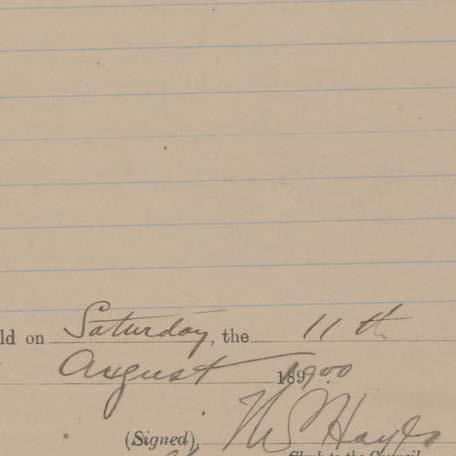 ld on Saturday, the 11th
August 1900
(Signed), Hayes
Clerk to the Council